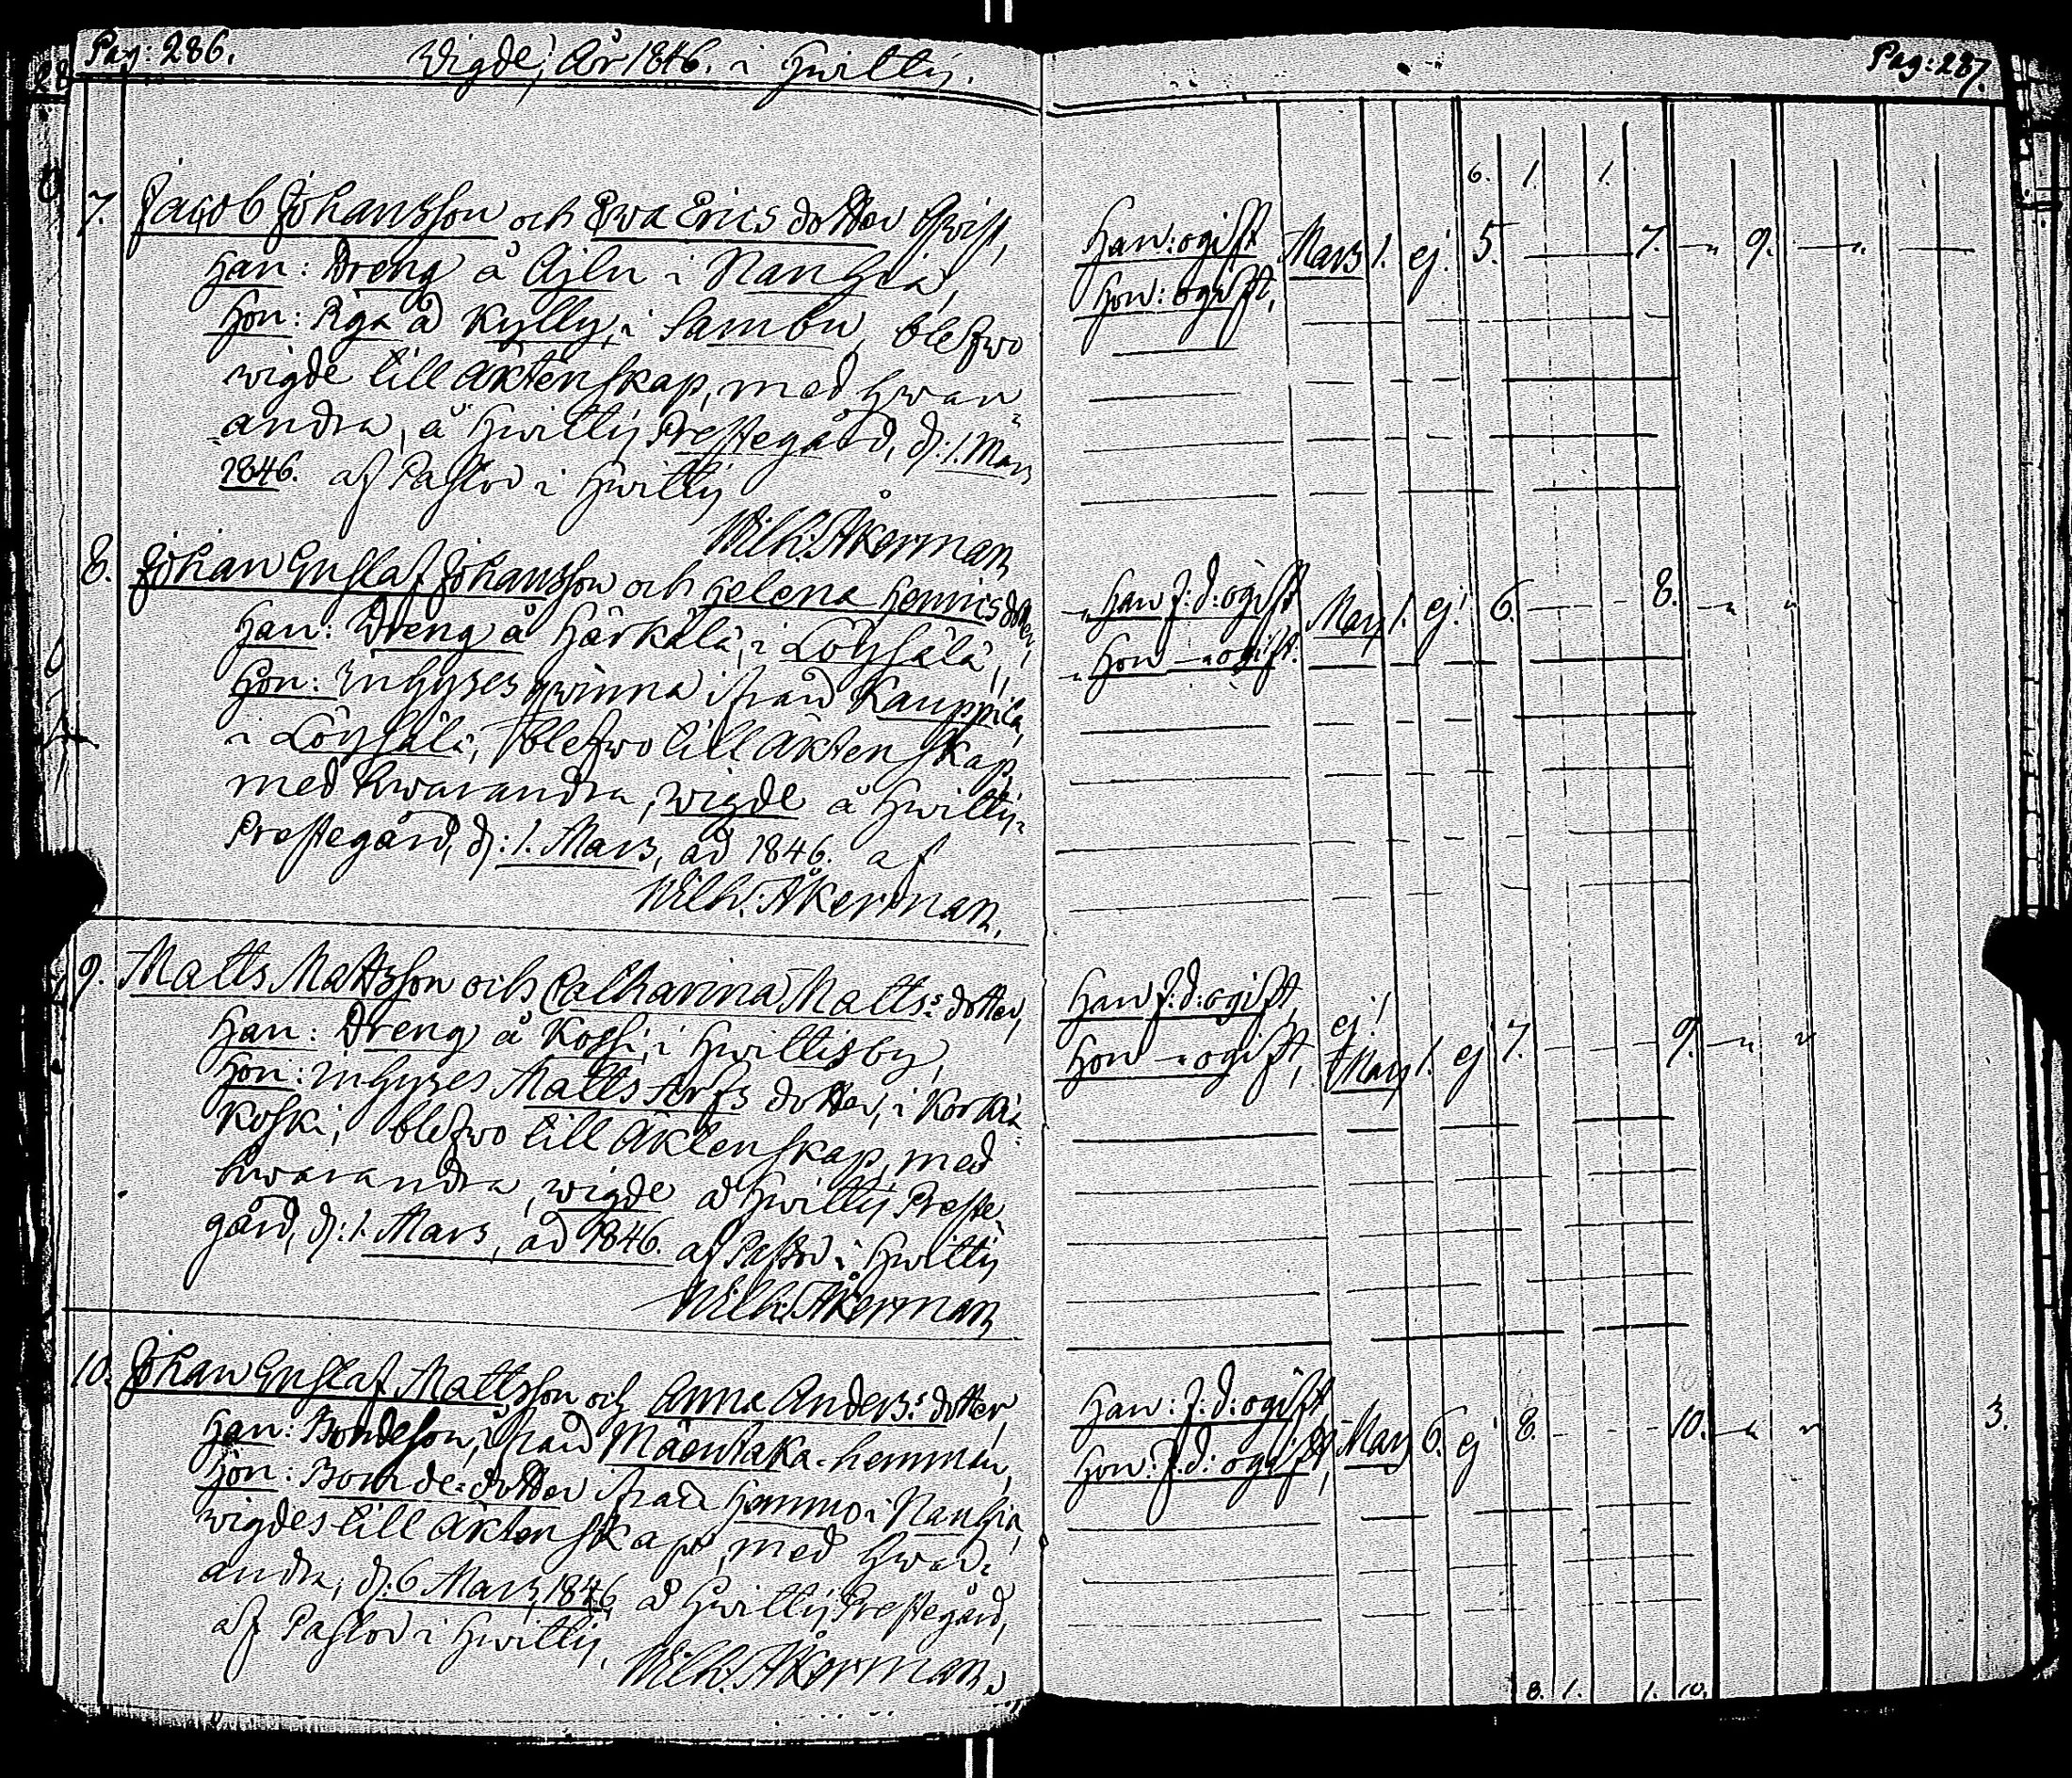 Pag: 286.
Wigde, År 1846. i Hwittis.
7. Jacob Johansson och Ewa Erics dotter
Han: Dreng å Äjln i Nanhia,
Hon: Piga å Kylly, i Sambu, blefwo
wigde till Äktenskap, med hwar=
=andra, å Hwittis Prestegård, d: 1. Mars
1846. af Pastor i Hwittis
Wilh: Åkerman
8. Johan Gustaf Johansson och Helena Henrics dotter,
Han: Dreng å Härkälä, i Löysälä,
Hon: Inhyses qwinna ifrån Kauppila,
i Löysälä, blefwo till Äktenskap
med hwarandra, wigde å Hwittis=
Prestegård, d: 1. Mars, åd 1846. af
Wilh: Åkerman.
9. Matts Mattsson och Catharina Matts: dotter,
Han: Dreng å Kossi, i Hwittisby,
Hon: Inhyses Matts Arfs dotter, i Korkia
koski, blefwo till Äktenskap, med
hwarandra, wigde å Hwittis Preste=
gård, d: 1. Mars, åd 1846. af Pastor i Hwittis
Wilh: Åkerman
10. Johan Gustaf Mattsson och Anna Anders: dotter,
Han: Bondeson, ifrån Mäentaka-hemman,
Hon: Bonde=dotter ifrån Hemmo i Nanhia,
wigdes till Äktenskap, med hwar=
andra, d: 6 Mars, 1846 å Hwittis Prestegård,
af Pastor i Hwittis,
Wilh: Åkerman.
Pag: 287.
6. 1. 1.
Han: ogift Mars 1. ej. 5. 7. " 9. "
Hon: ogift,
Han f.d: ogift Mars 1. ej! 6. 8. " "
Hon — " ogift.
Han f.d: ogift,
ej!
Hon — " ogift, Mars 1. ej 7. 9. " "
Han: f.d: ogift
Hon: f.d: ogift, Mars 6. ej 8. 10. " " 3.
8. 1. 1. 10.